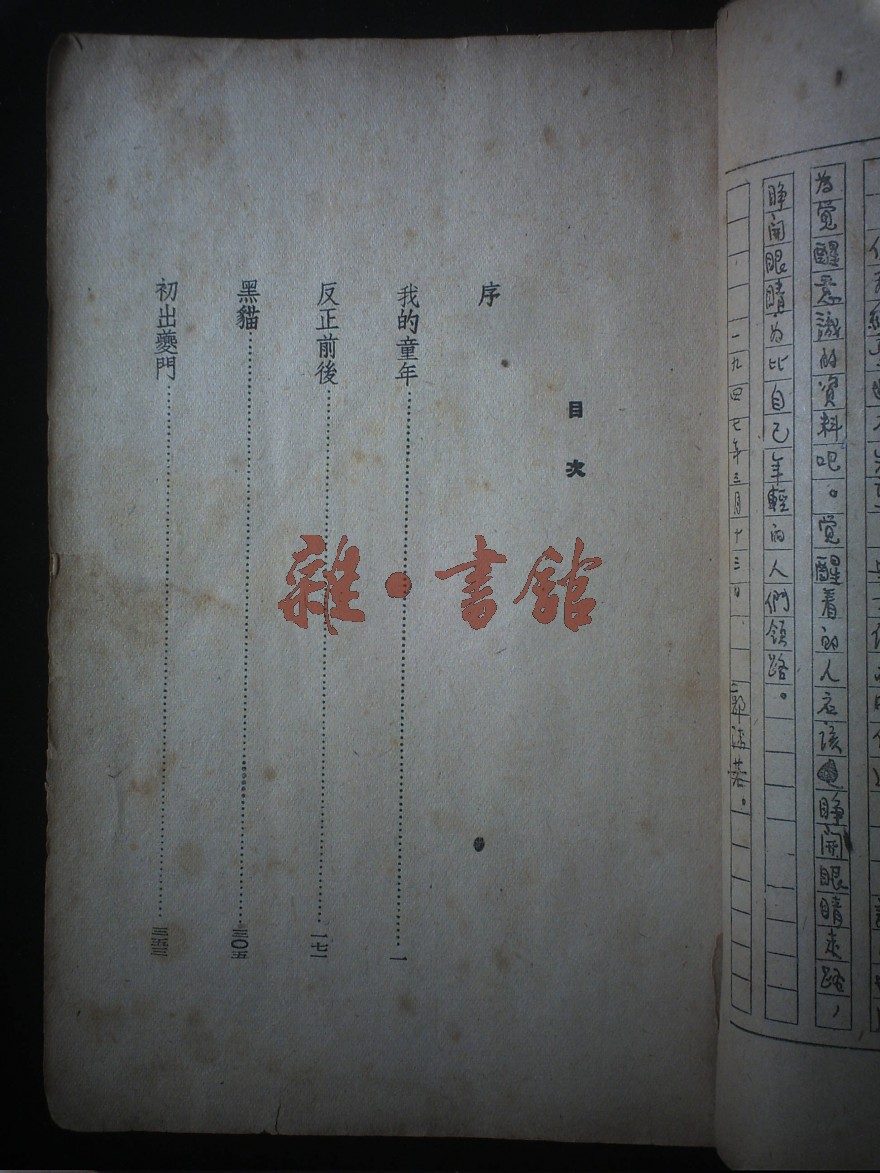 為覚醒意識的資料吧。覚醒着的人应該睁開眼睛走路，
睁開眼睛为比自己年輕的人們領路。
一九四七年三月十三日 郭沫若。
目次
序
我的童年……一
反正前後……一七一
黑貓……三〇五
初出夔門……三五三
雜·書館